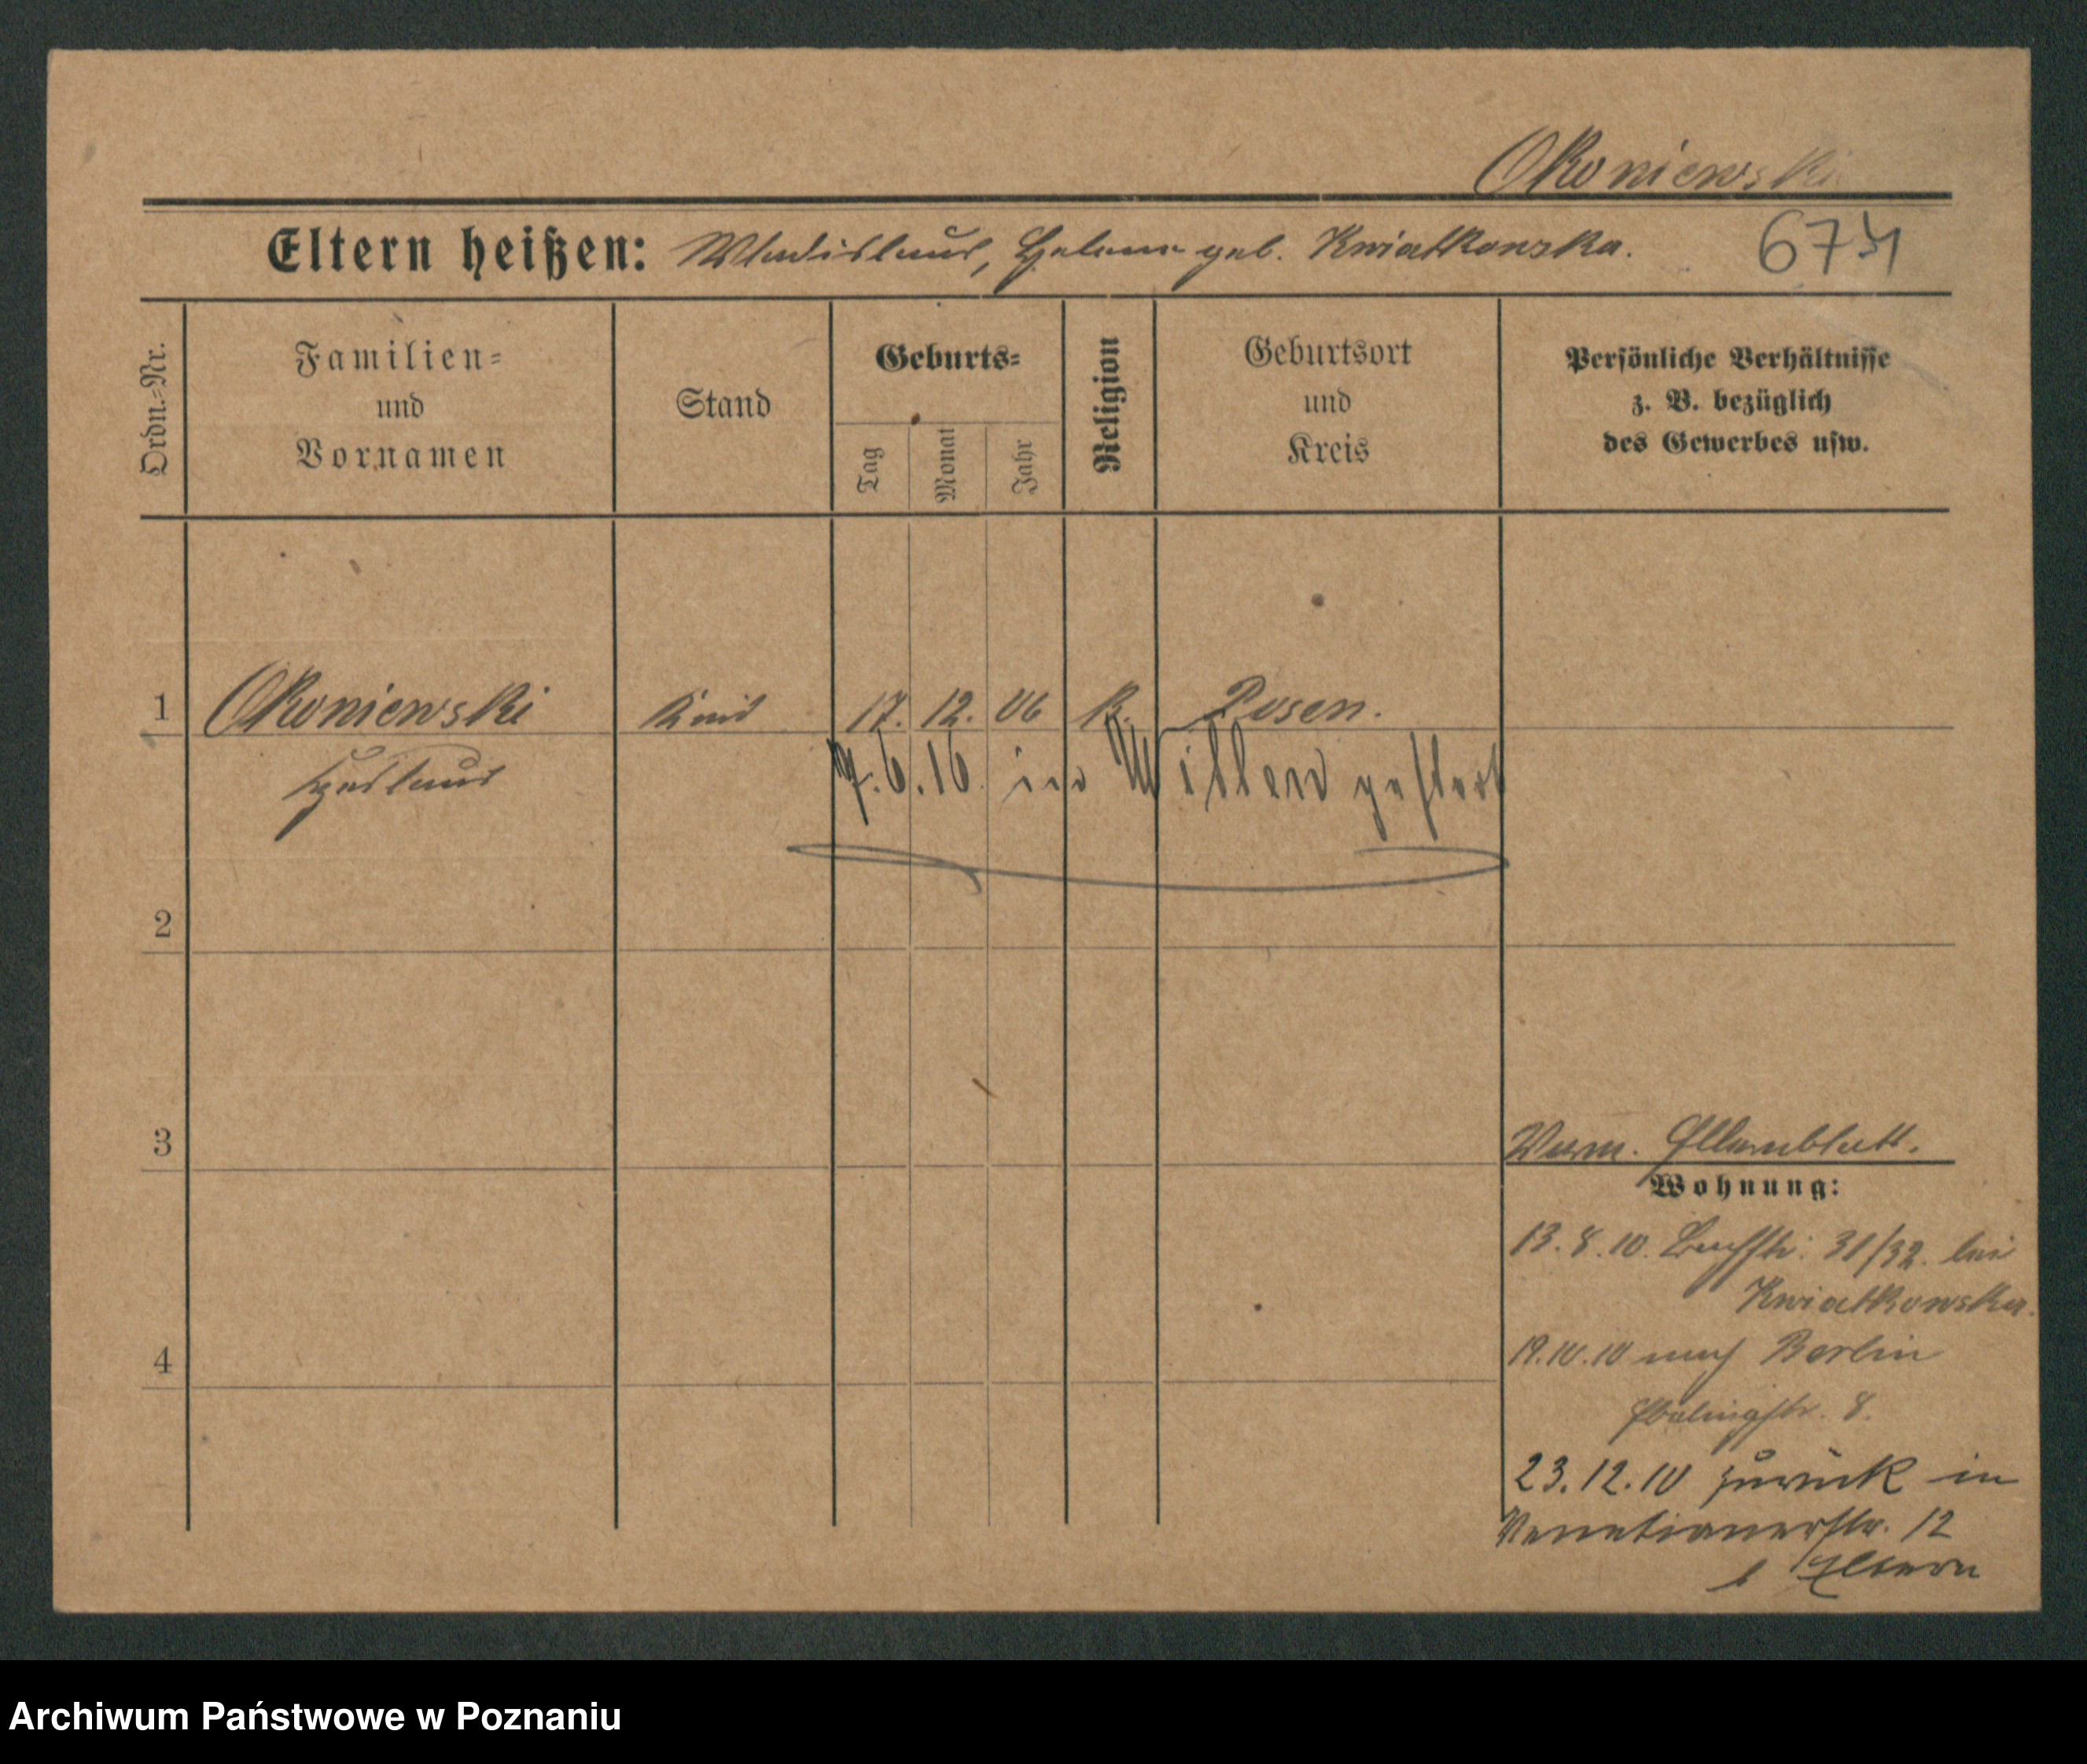 Okoniewski
Eltern heißen: Wladislaus, Helene geb. Kwiatkowska.
Ordn.=Nr.
Familien=
und
Vornamen
Stand
Geburts=
Tag
Monat
Jahr
Religion
Geburtsort
und
Kreis
Persönliche Verhältnisse
z. B. bezüglich
des Gewerbes usw.
1 Okoniewski Kind 17. 12. 06 K. Posen.
7.6.16 in gestorb
2
3
Elternblatt.
Wohnung:
13.8.10. 31/32. bei
Kwiatkowska.
19.10.10 nach Berlin
Ebelingstr. 8.
23.12.10 zurück in
Venetianerstr. 12
b Eltern
4
Archiwum Państwowe w Poznaniu